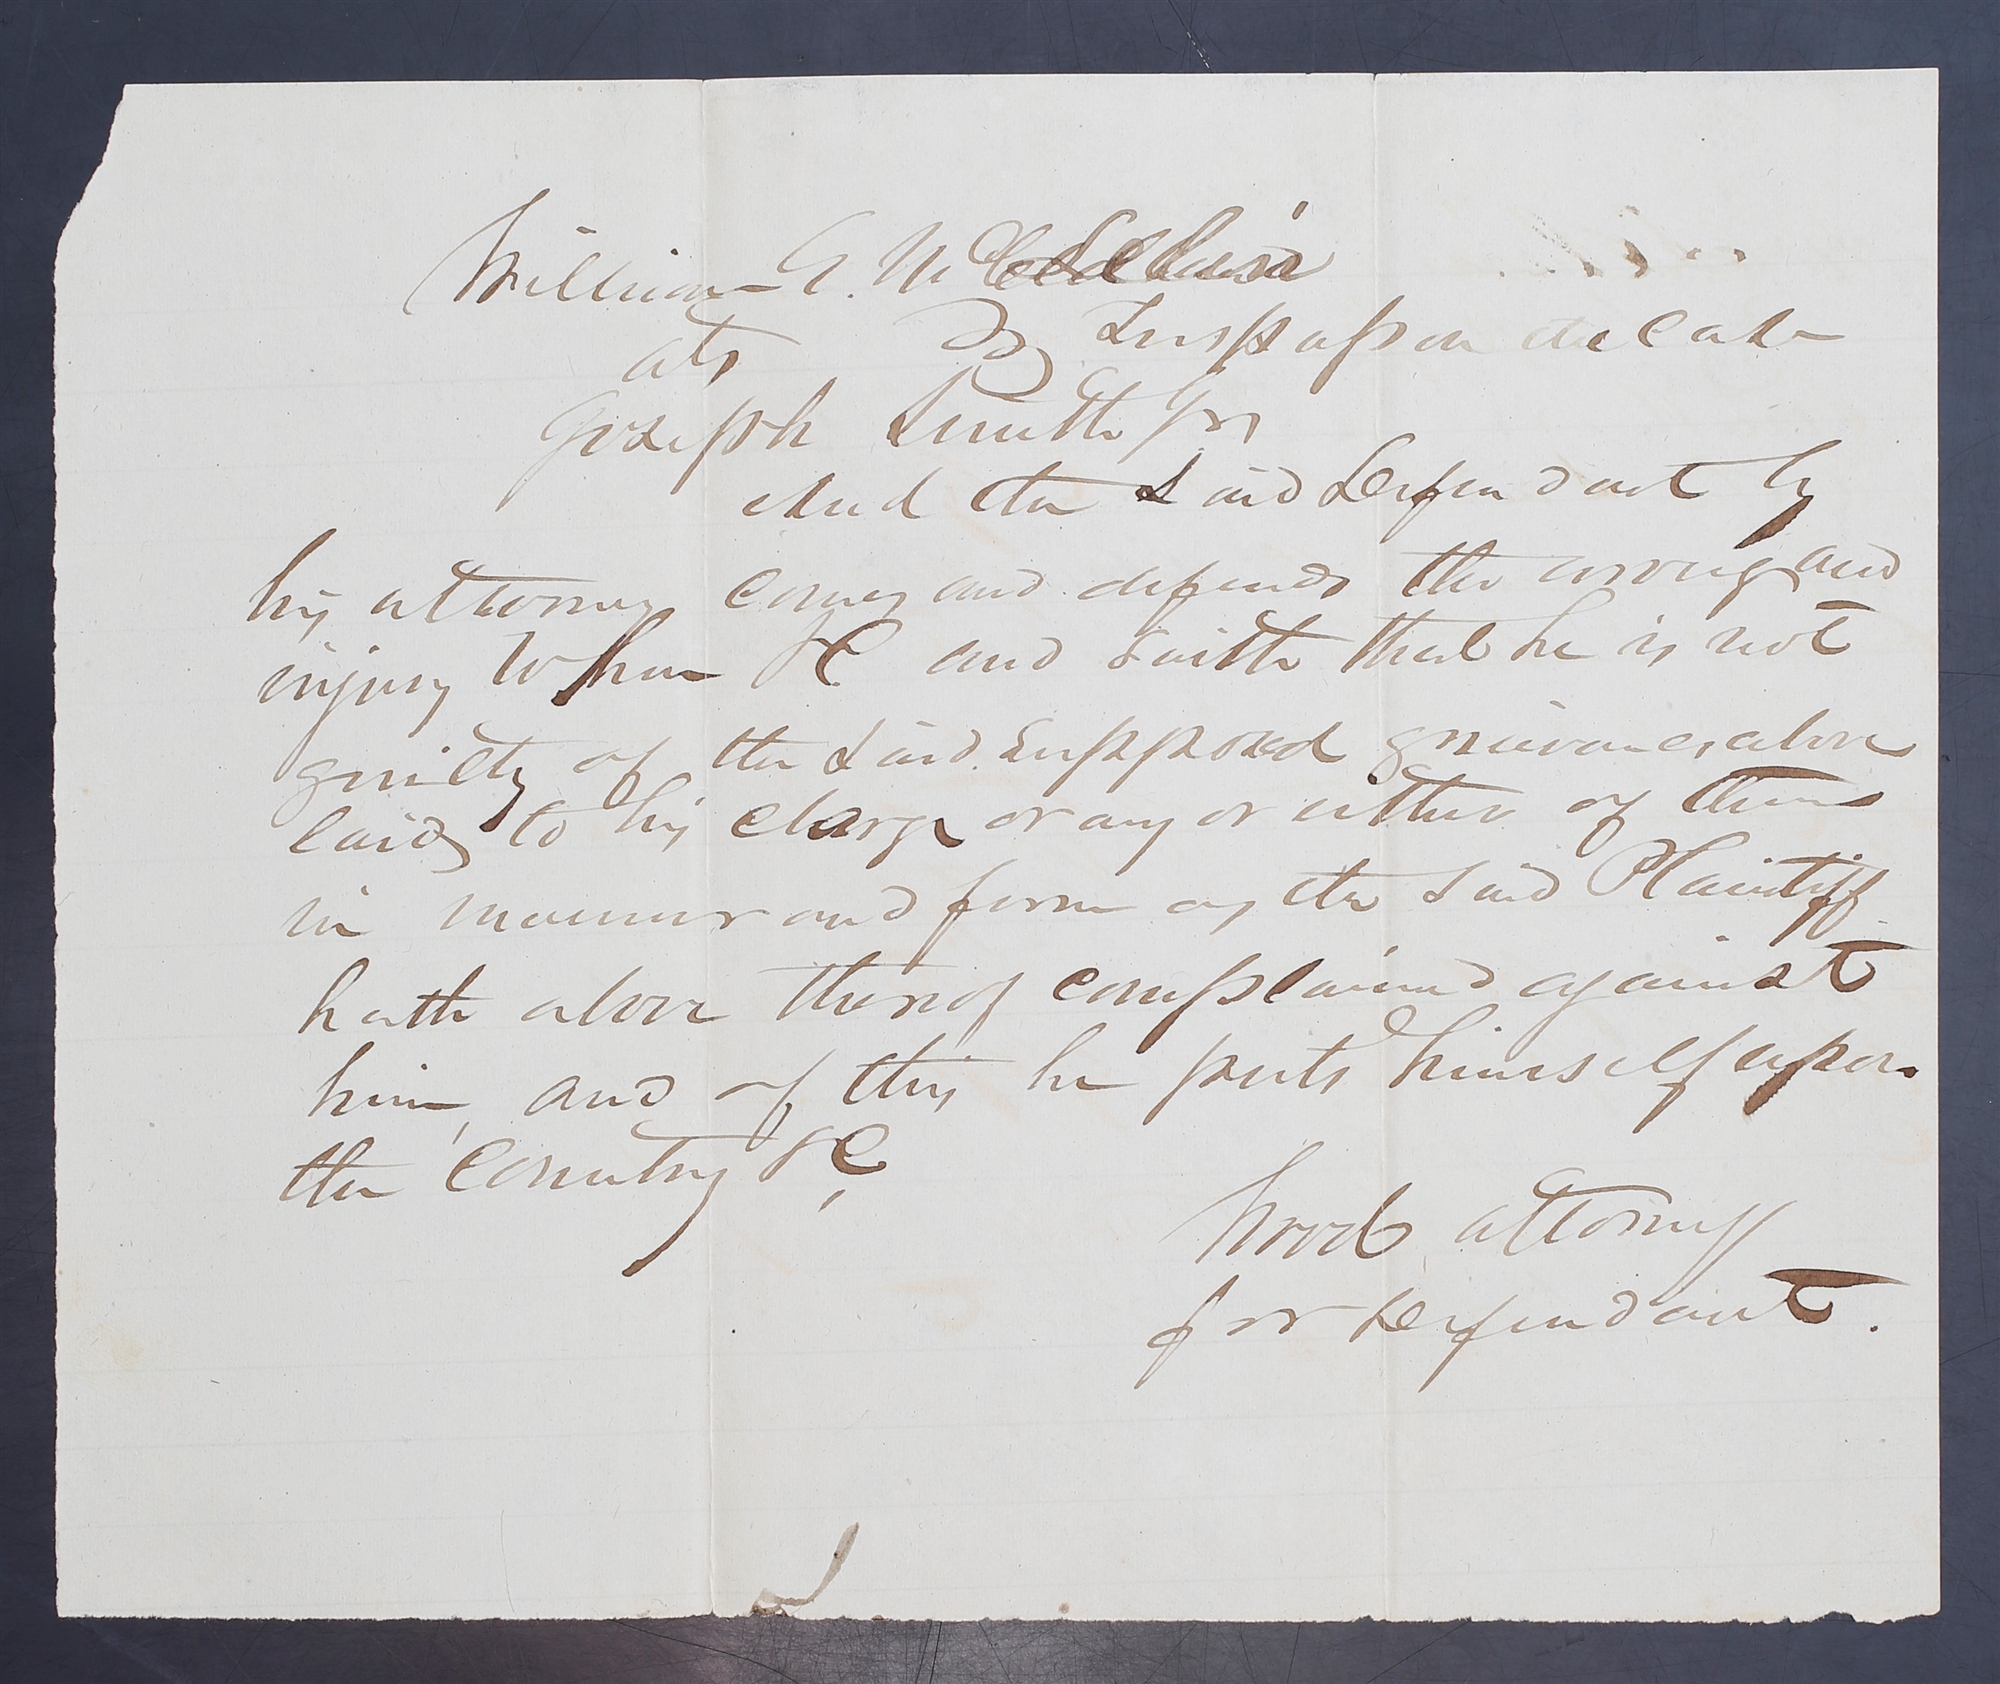 William E. McLellin
ats Trespass on the Case
Joseph Smith Jr
And the Said Defendant by
his attorney comes and defends the wrong and
injury when &C and saith that he is not
guilty of the Said supposed grievances above
laid to his charge or any or either of them
in manner and form as the Said Plaintiff
hath above thereof complained against
him, and of this he puts himself upon
the Country &C,
Wood attorney
for Defendant.